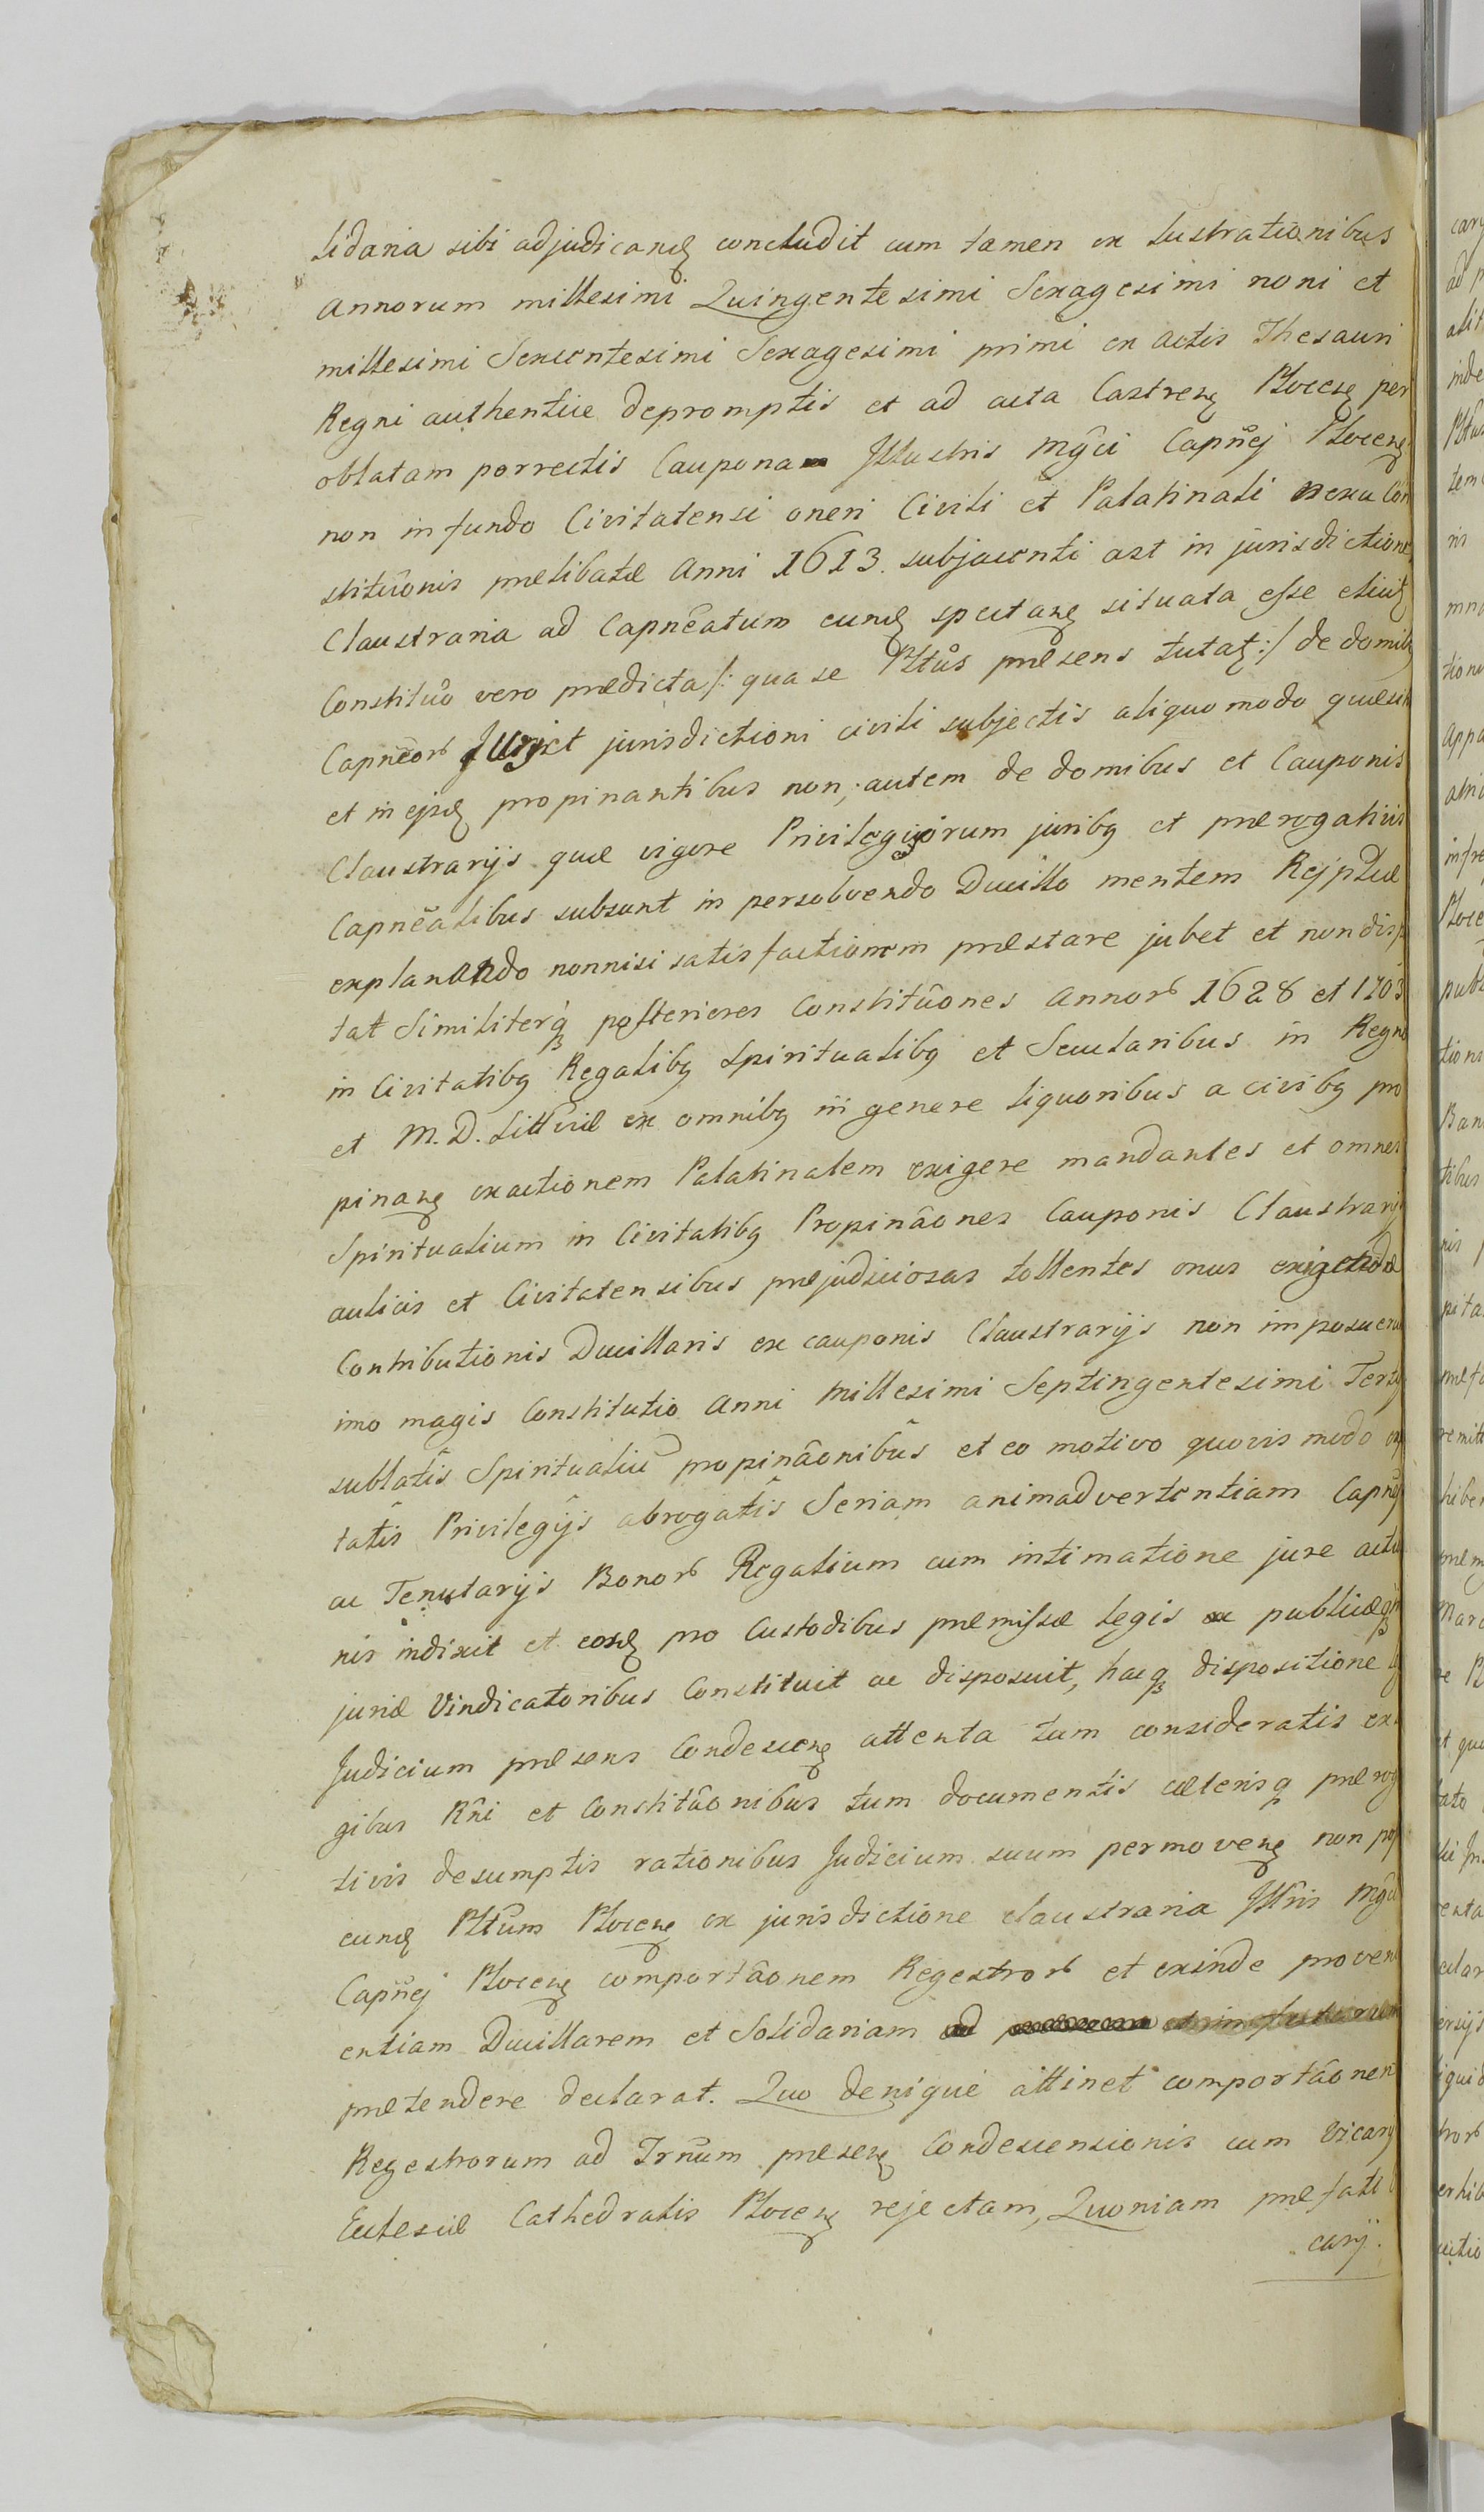 lidaria sibi adjudicand concludit cum tamen ex Lustrationibus
Annorum millesimi Quingentesimi Sexagesimi noni et
millesimi Sexcentesimi Sexagesimi primi ex Actis Thesauri
Regni authentice depromptis et ad acta Castren Plocen per
oblatam porrectis Cauponam Illustris Mgci Capnej Plocen
non in fundo Civitatensi oneri Civili et Palatinali nexu Con
stituonis prælibatæ Anni 1613. subjacenti ast in jurisdictione
Claustraria ad Capneatum eund spectan situata esse elicit
Constituo vero prædicta /: qua se Pltus præsens tutat :/ de domibq
Capneor jurisdictioni civili subjectis aliquo modo quæsit
et in ejsd propinantibus non, autem de domibus et Cauponis
Claustrarijs quæ vigore Privilegiorum juribq et prærogativis
Capnealibus subsunt in persolvendo Ducillo mentem Rejptcæ
explanando nonnisi satisfactionem præstare jubet et non disp
tat Similiterq posteriores Constituones Annor 1628 et 1703
in Civitatibq Regalibq Spiritualibq et Secularibus in Regno
et M. D. Littviæ ex omnibq in genere liquoribus a civibq pro
pinan exactionem Palatinalem exigere mandantes et omnes
Spiritualium in Civitatibq Propinaones Cauponis Claustrarijs
aulicis et Civitatensibus præjudiciosas tollentes onus exigendæ
Contributionis Ducillaris ex cauponis Claustrarijs non imposuerunt
imo magis Constitutio Anni Millesimi Septingentesimi Tertij
sublatis Spiritualiu propinaonibus et eo motivo quovis modo
tatis Privilegijs abrogatis Seriam animadvertentiam Capnej
ac Tenutarijs Bonor Regalium cum intimatione jure
nis indixit et eosd pro Custodibus præmissæ legis ac publicæq
juriæ Vindicatoribus Constituit ac disposuit, hacq dispositione
Judicium præsens Condescen attenta tum consideratis ex
gibus Rni et Constituonibus tum documentis cæterisq prærog
tivis desumptis rationibus Judicium suum permoven non
eund Pltum Plocen ex jurisdictione claustraria Illris Mgci
Capnej Plocen comportaonem Regestror et exinde proveni
entiam Ducillarem et Solidariam
prætendere declarat. Quo denique attinet comportaonem
Regestrorum ad Trnum præsen Condescensionis cum Vicarij
Ecclesiæ Cathedralis Plocen rejectam, Quoniam præfati
carij.